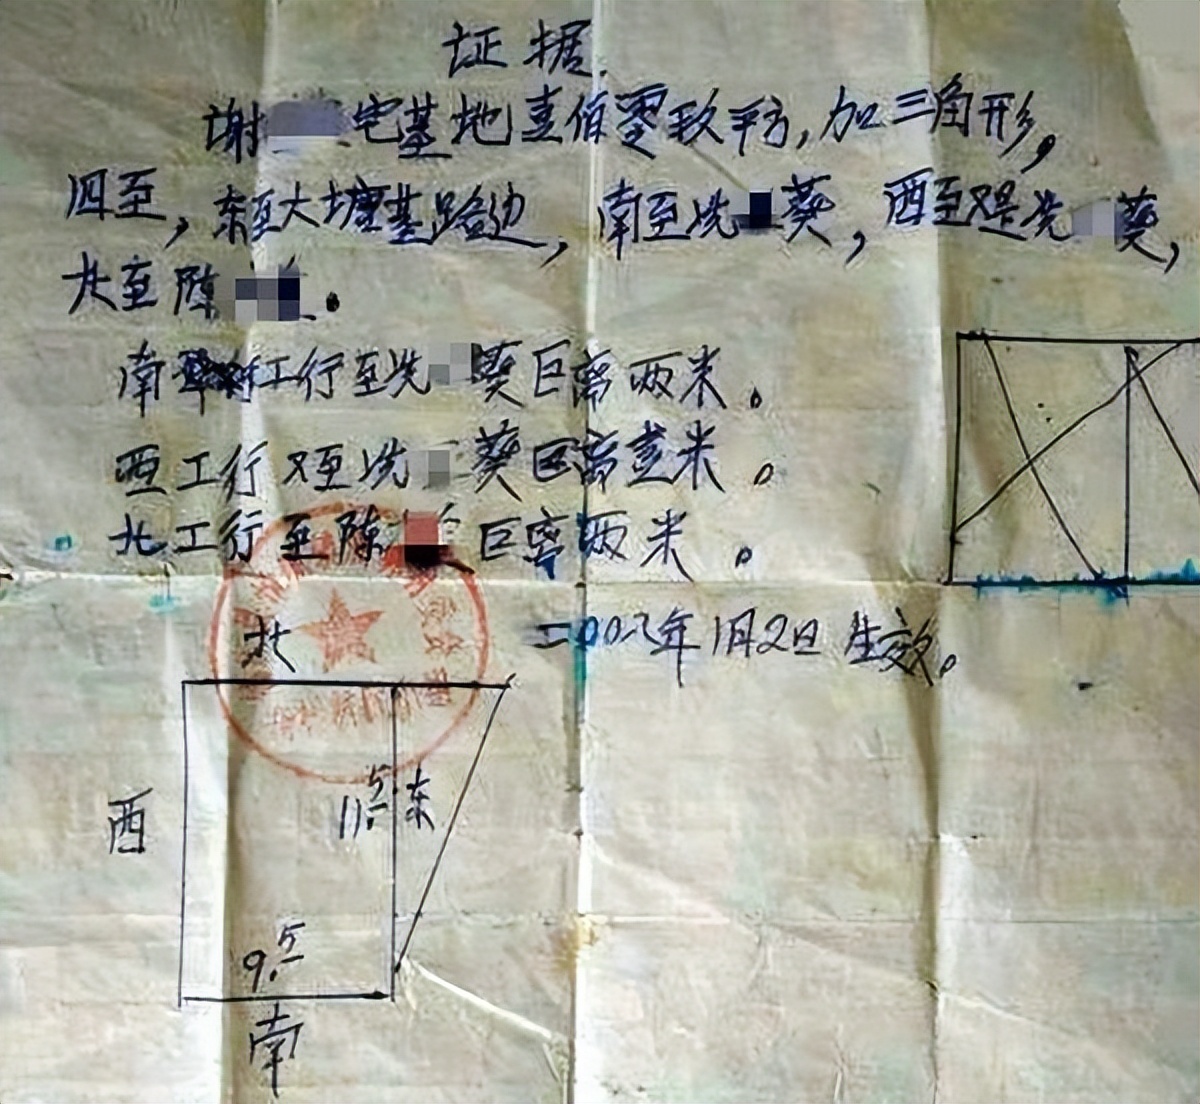 证据.
谢 宅基地壹佰零玖平方,加三角形,
四至,东至大塘基路边,南至冼 葵,西至又是冼 葵,
北至陈 。
南 工行至冼 葵巨离两米。
西工行又至冼 葵巨离壹米。
北工行至陈 巨离两米。
年1月2日生效。
北
西
11.5
东
9.5
南